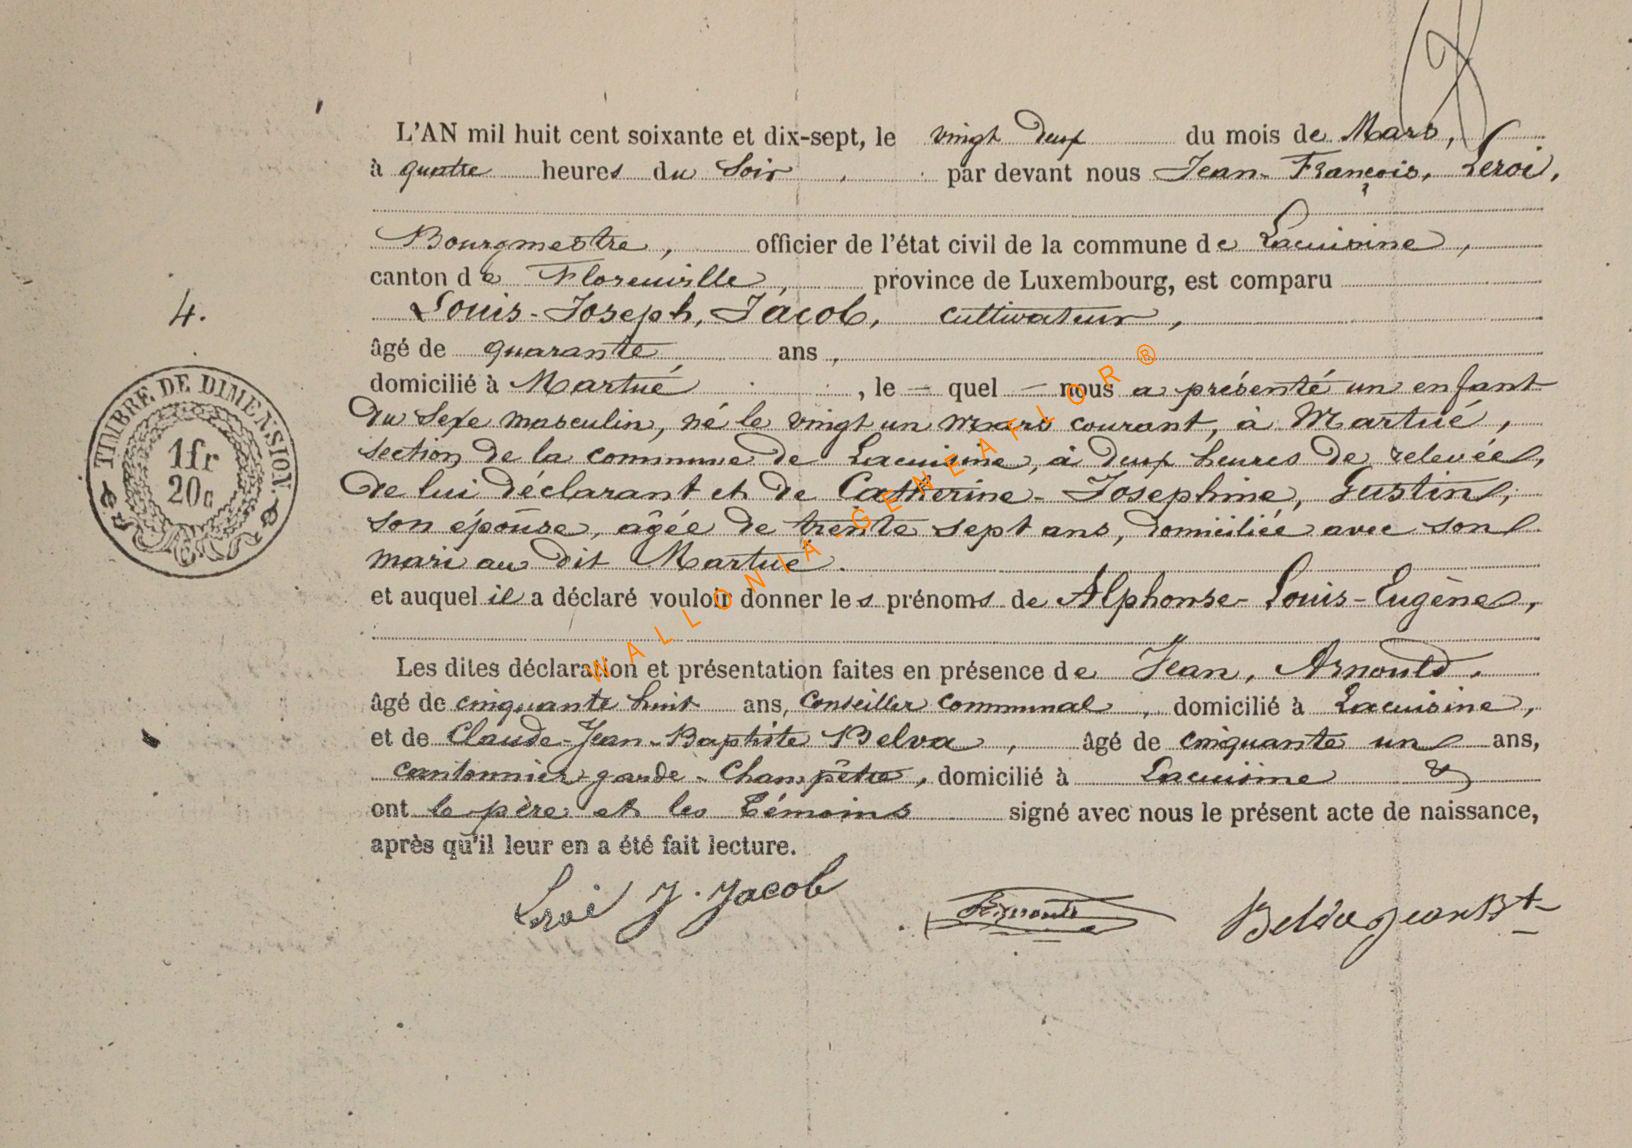 L'AN mil huit cent soixante et dix-sept, le vingt deux du mois de Mars,
à quatre heures du Soir, par devant nous Jean-François, Leroi,
Bourgmestre, officier de l'état civil de la commune de Lacuisine,
canton de Florenville, province de Luxembourg, est comparu
Louis-Joseph, Jacob, cultivateur,
4.
âgé de quarante ans,
domicilié à Martué, le — quel — nous a présenté un enfant
TIMBRE DE DIMENSION.
1fr
20c
du sexe masculin, né le vingt un mars courant, à Martué,
section de la commune de Lacuisine, à deux heures de relevée,
de lui déclarant et de Catherine-Josephine, Gustin,
son épouse, âgée de trente sept ans, domiciliée avec son
mari au dit Martué.
et auquel il a déclaré vouloir donner les prénoms de Alphonse-Louis-Eugène,
Les dites déclaration et présentation faites en présence de Jean, Arnould,
âgé de cinquante huit ans, Conseiller communal, domicilié à Lacuisine,
et de Claude-Jean-Baptiste Belva, âgé de cinquante un ans,
cantonnier garde-Champêtre, domicilié à Lacuisine &
ont le père et les témoins signé avec nous le présent acte de naissance,
après qu'il leur en a été fait lecture.
Leroi J. Jacob Arnould Belva Jean Bt
WALLONIA GENEAFLOR ®